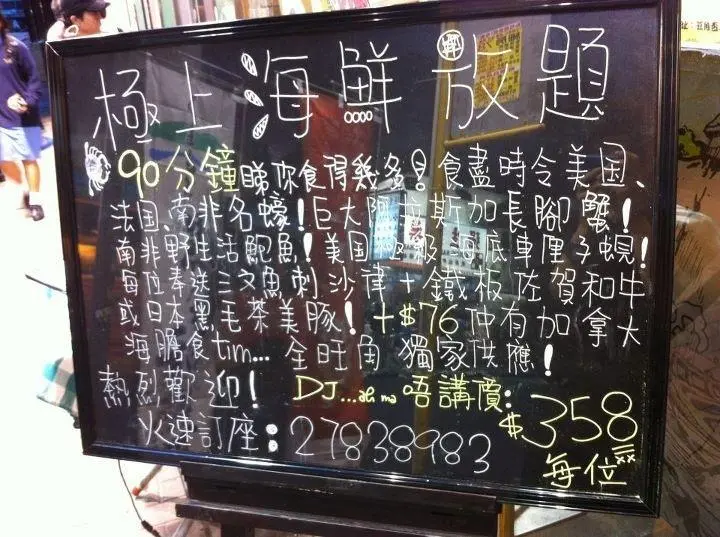 極上海鮮放題
90分鐘睇你食得幾多!食盡時令美国、
法国、南非名蠔!巨大阿拉斯加長腳蟹!
南非野生活鮑魚!美国極級海底車厘子蜆!
每位奉送三文魚刺沙律+鐵板佐賀和牛
或日本黑毛茶美豚!+$76仲有加拿大
海膽食tim...全旺角獨家供應!
熱烈歡迎!DJ...ah ma唔講價:$358
火速訂座:27838983 每位